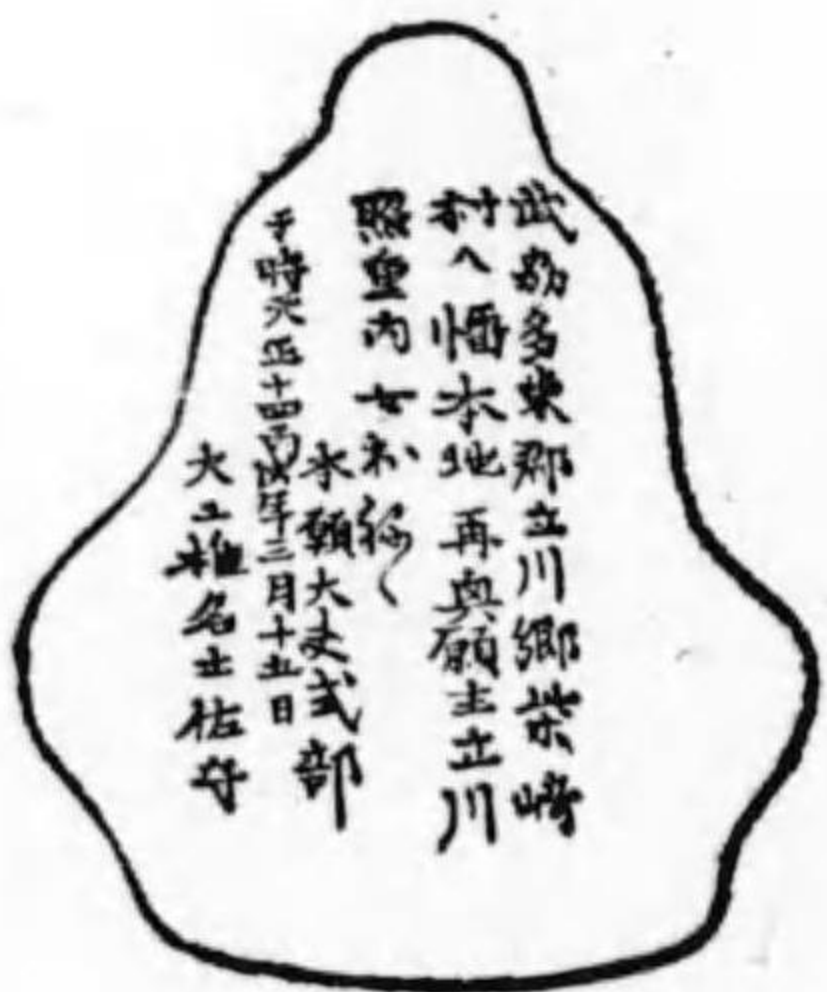 武州多東郡立川郷柴崎
村八幡本地再興願主立川
照重内女お祢〱
本願大夫式部
于時天正十四丙戌年三月十五日
大工椎名土佐守